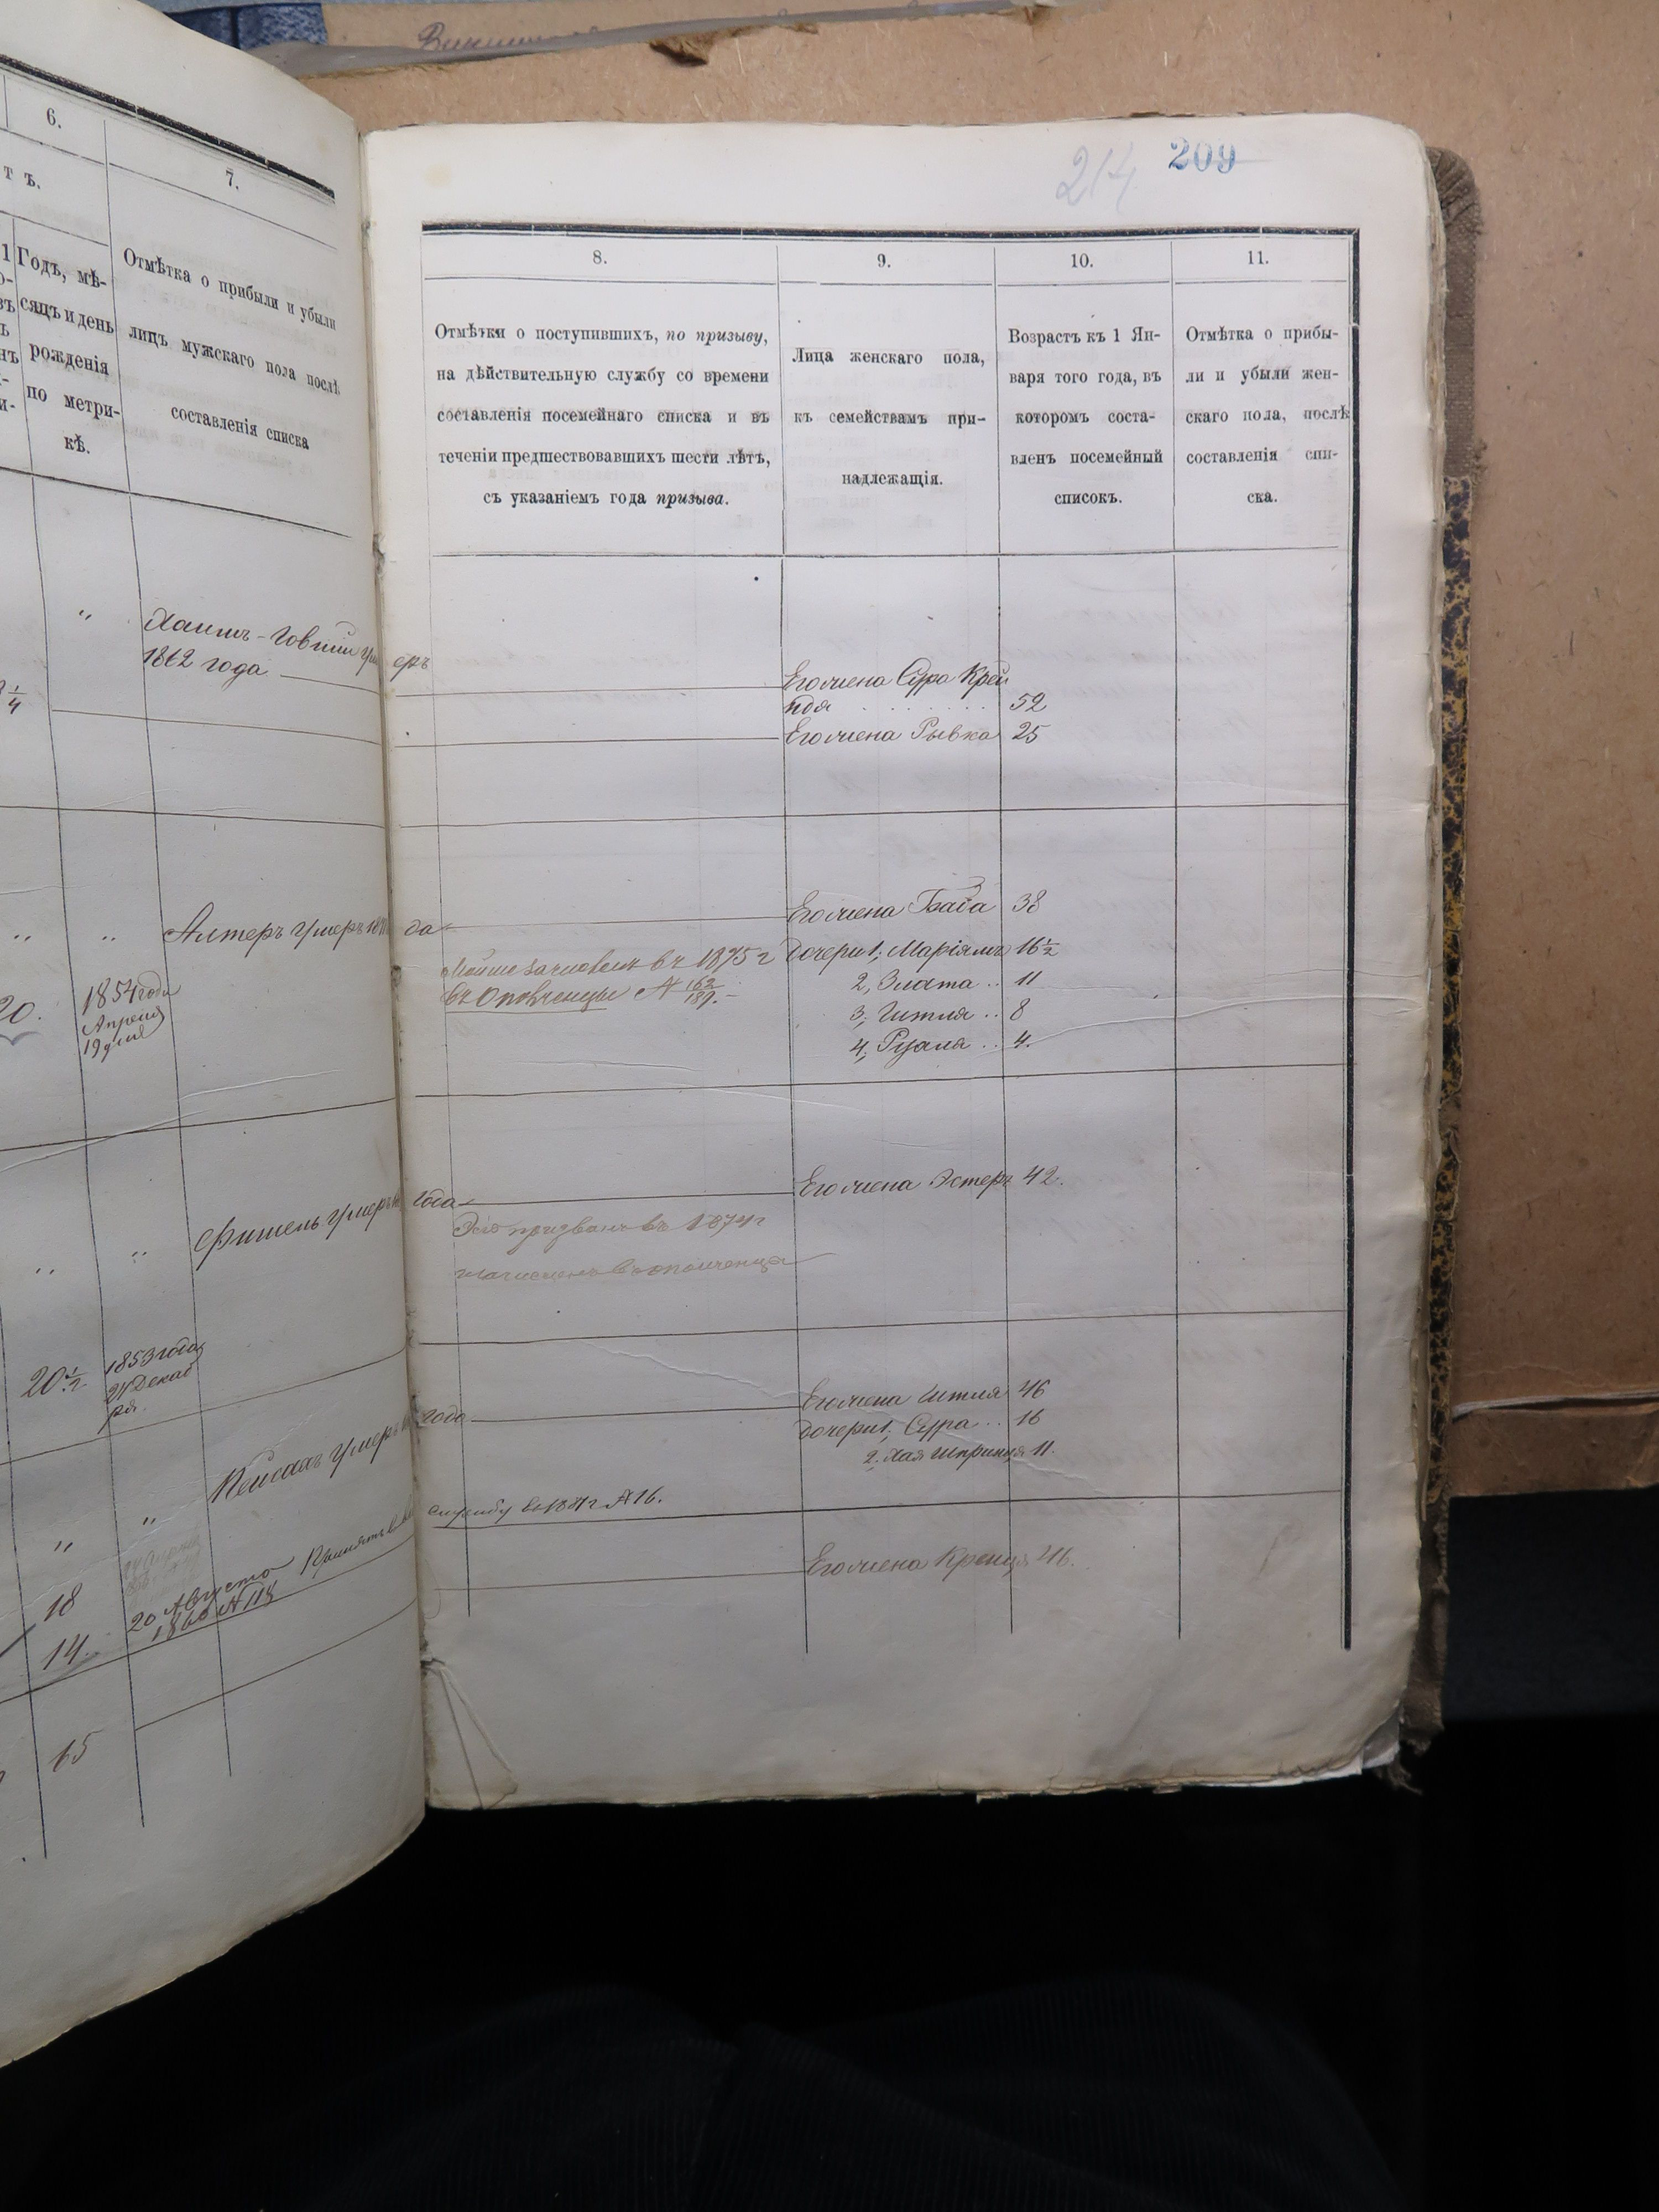 6.
т ъ.
7.
Годъ, мѣ-
сяцъ и день
рожденія
по метри-
кѣ.
Отмѣтка о прибыли и убыли
лицъ мужскаго пола послѣ
составленія списка
"
Хаимъ-Товши ум
1862 года
1/4
" "
Алтеръ умеръ 18
20.
1854 года
Апреля
19 дня
" "
Фишель умеръ
20 1/2
1853 года
21 Декаб
ря.
" "
Кейсахъ умеръ
18
14.
20 Августа
1860 № 118
Принятъ
15
214
209
8.
9.
10.
11.
Отмѣтки о поступившихъ, по призыву,
на дѣйствительную службу со времени
составленія посемейнаго списка и въ
теченіи предшествовавшихъ шести лѣтъ,
съ указаніемъ года призыва.
Лица женскаго пола,
къ семействамъ при-
надлежащія.
Возрастъ къ 1 Ян-
варя того года, въ
которомъ соста-
вленъ посемейный
списокъ.
Отмѣтка о прибы-
ли и убыли жен-
скаго пола, послѣ
составленія спи-
ска.
еръ
Его жена Сура Крей
ндя . . . . . . . 52
Его жена Рывка 25
да
Его жена Баба 38
Мойше зачисленъ въ 1875 г
въ Ополченцы № 162/189.-
Дочери 1, Маріямъ 16 1/2
2, Злата .. 11
3, Гитля .. 8
4, Рузля .. 4.
года
Его жена Эстеръ 42.
призванъ въ 1874 г
зачисленъ въ ополченцы
года
Его жена Гитля 46
Дочери 1, Сура .. 16
2. Хая Шпринця 11.
службу въ 1881 г № 16.
Его жена Кренця 46.